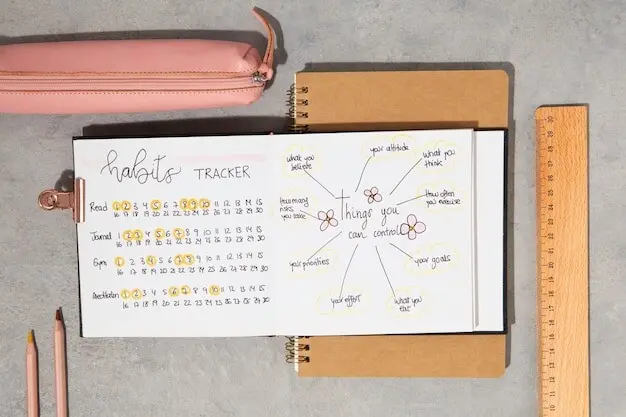 habits TRACKER
Read 1 2 3 4 5 6 7 8 9 10 11 12 13 14 15
16 17 18 19 20 21 22 23 24 25 26 27 28 29 30
Journal 1 2 3 4 5 6 7 8 9 10 11 12 13 14 15
16 17 18 19 20 21 22 23 24 25 26 27 28 29 30
Gym 1 2 3 4 5 6 7 8 9 10 11 12 13 14 15
16 17 18 19 20 21 22 23 24 25 26 27 28 29 30
Meditation 1 2 3 4 5 6 7 8 9 10 11 12 13 14 15
16 17 18 19 20 21 22 23 24 25 26 27 28 29 30
what you
believe
your attitude
what you
think
How many
risks
you take
How often
you exercise
Things you
can control
your priorities
your goals
your efforts
what you
eat